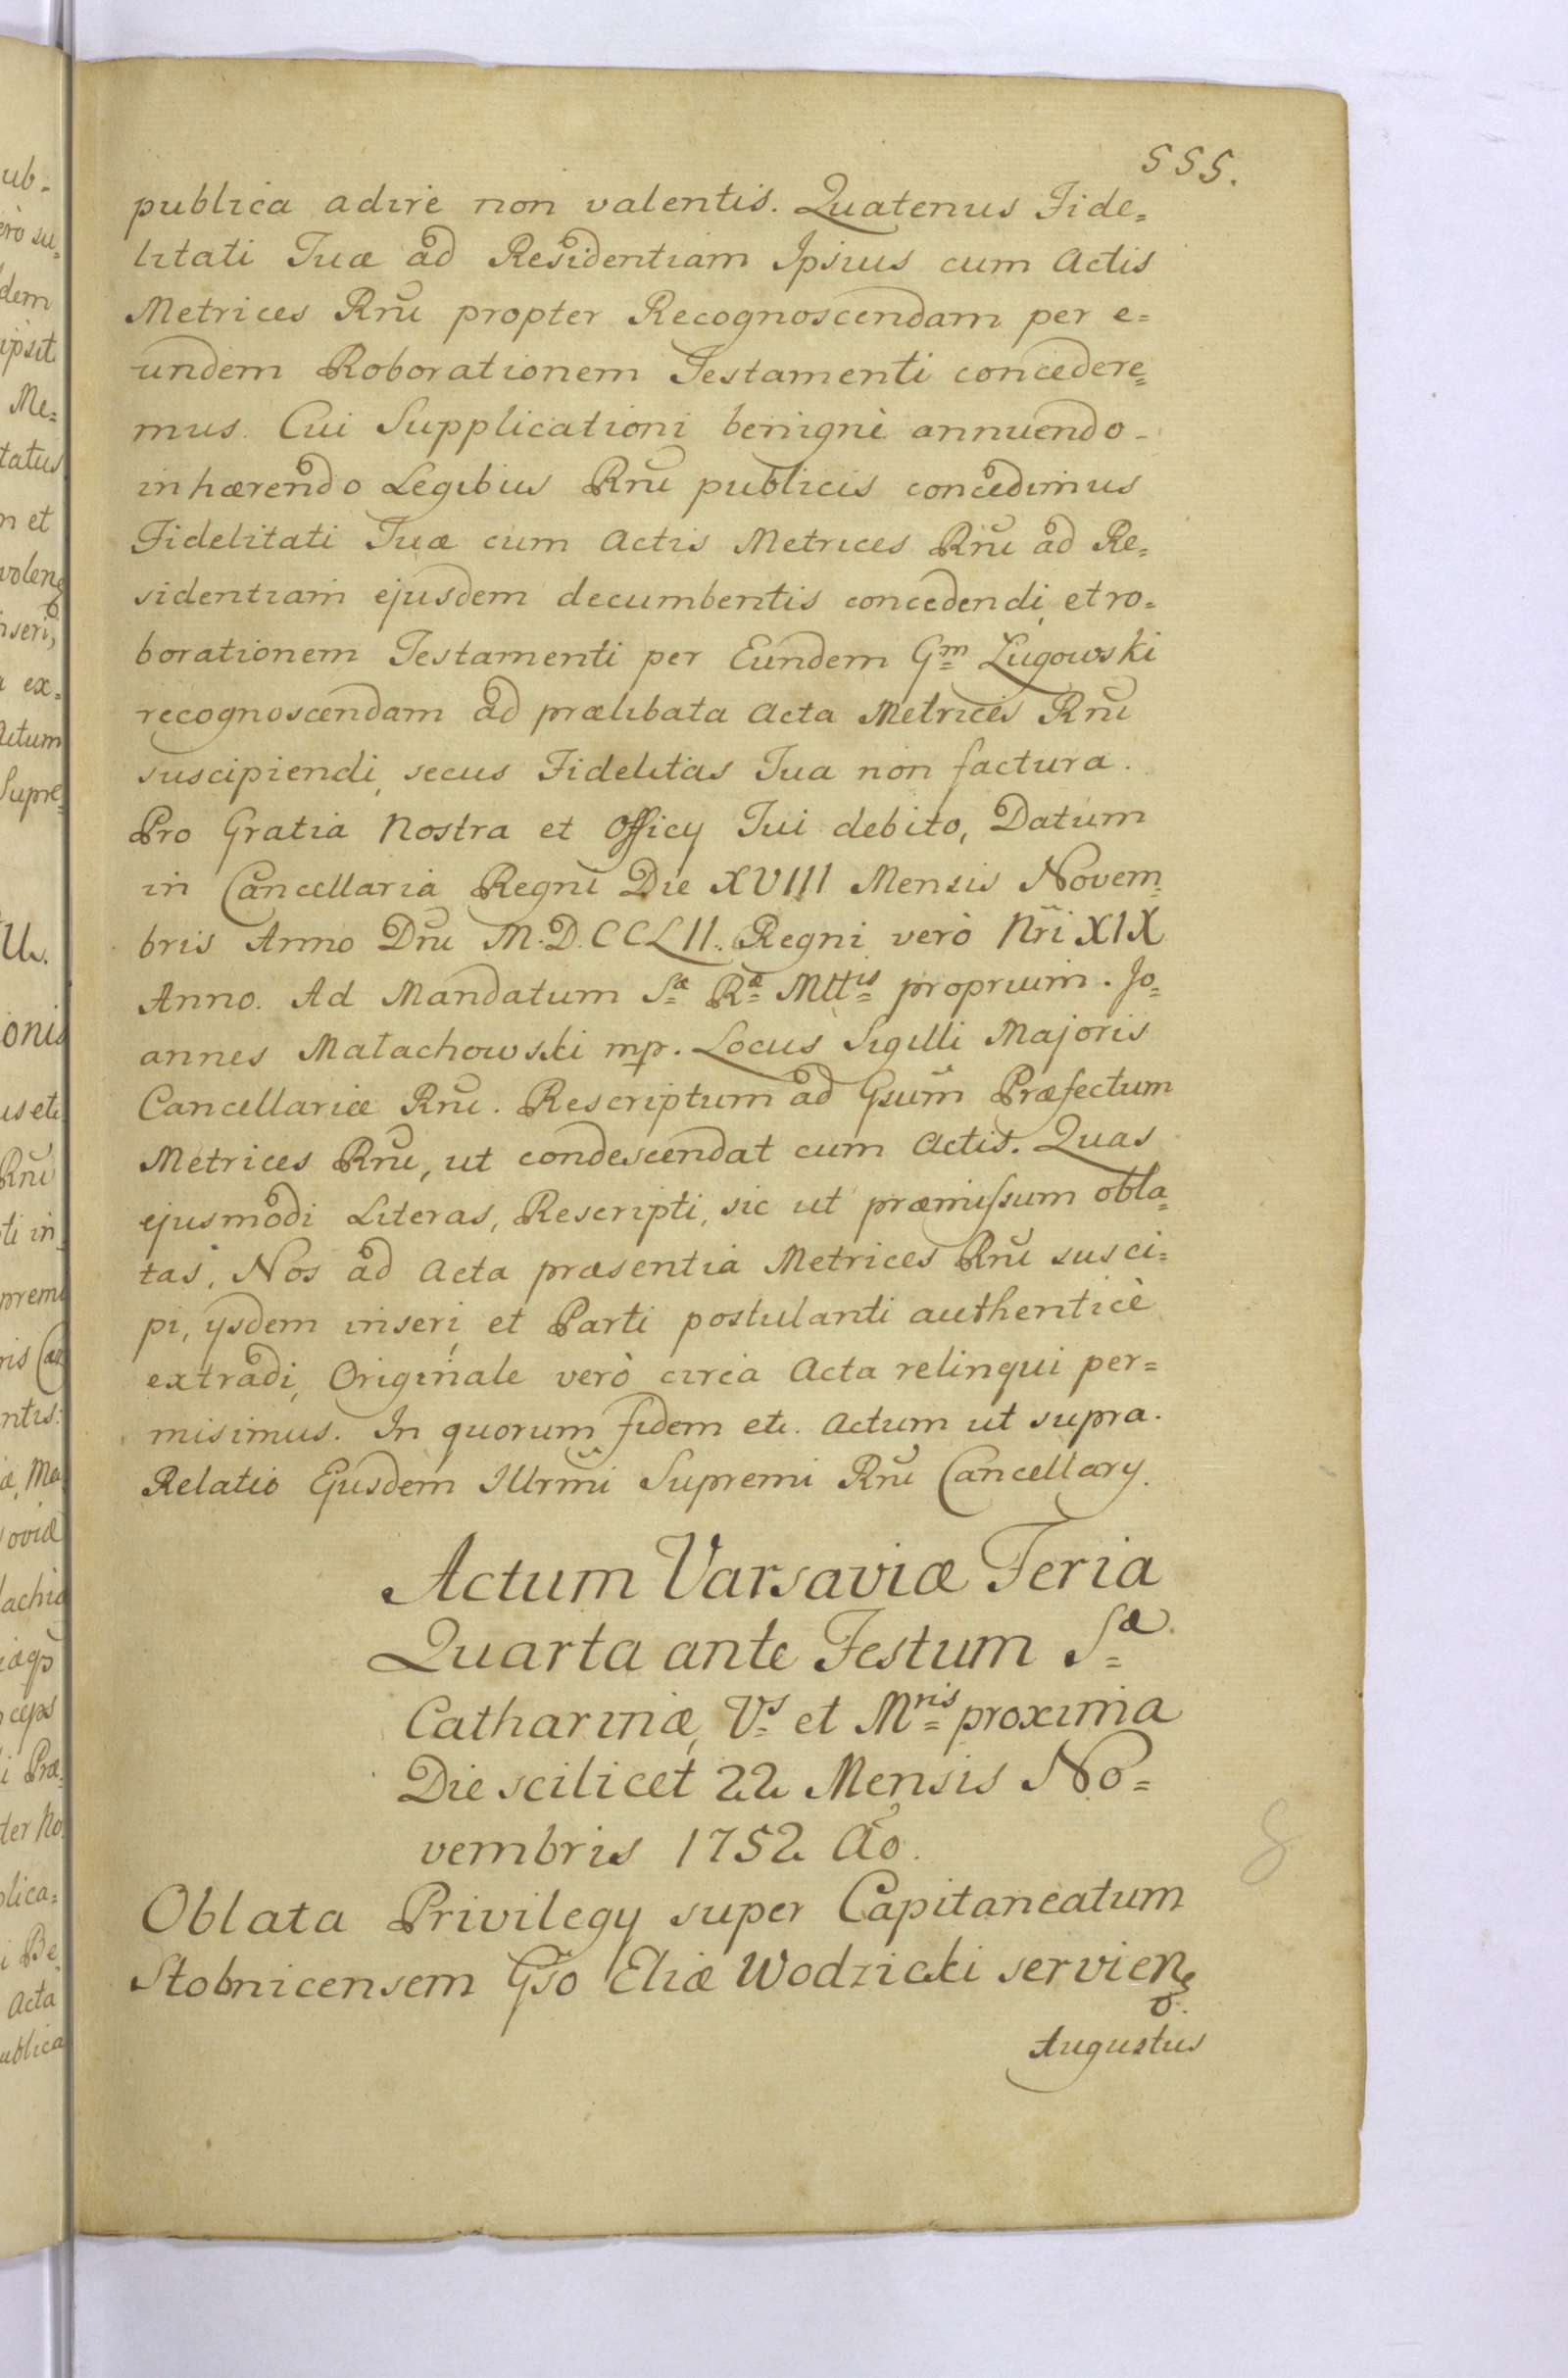 555.
publica adire non valentis. Quatenus Fide=
litati Tuæ ad Residentiam Ipsius cum Actis
Metrices Rnĩ propter Recognoscendam per e=
undem Roborationem Testamenti concedere=
mus. Cui Supplicationi benignè annuendo
inhærendo Legibus Rnĩ publicis concedimus
Fidelitati Tuæ cum Actis Metrices Rnĩ ad Re=
sidentiam ejusdem decumbentis concedendi, et ro=
borationem Testamenti per Eundem Gm Lugowski
recognoscendam ad prælibata Acta Metrices Rnĩ
suscipiendi, secus Fidelitas Tua non factura.
Pro Gratia Nostra et Officy Tui debito, Datum
in Cancellaria Regni Die XVIII Mensis Novem=
bris Anno Dnĩ M.D.CCLII. Regni verò Nrĩ XIX
Anno. Ad Mandatum Sæ Ræ Mttis proprium. Jo=
annes Małachowski mp. Locus Sigilli Majoris
Cancellariæ Rnĩ. Rescriptum ad Gsum̃ Præfectum
Metrices Rnĩ, ut condescendat cum Actis. Quas
ejusmodi Literas, Rescripti, sic ut præmissum obla=
tas, Nos ad Acta præsentia Metrices Rnĩ susci=
pi, ysdem inseri, et Parti postulanti authenticè
extradi, Originale verò circa Acta relinqui per=
misimus. In quorum fidem etc. Actum ut supra.
Relatio Ejusdem Illrm̃i Supremi Rnĩ Cancellary.
Actum Varsaviæ Feria
Quarta ante Festum Sæ
Catharinæ, Vs et Mris proxima
Die scilicet 22 Mensis No=
vembris 1752 Aõ.
Oblata Privilegy super Capitaneatum
Stobnicensem Gso Eliæ Wodzicki servien
Augustus